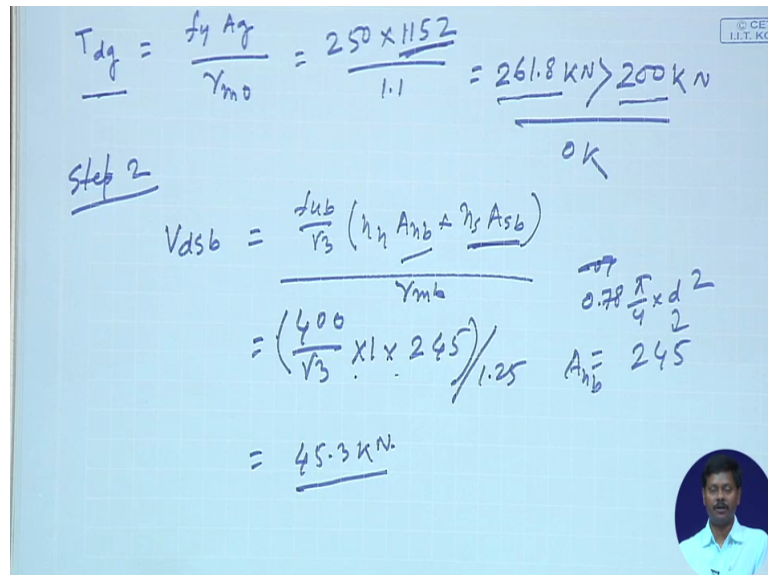 © CET
I.I.T. KG
Tdg = fy Ag / γm0 = 250 × 1152 / 1.1 = 261.8 KN > 200 KN
OK
Step 2
Vdsb = fub/√3 (nn Anb + ns Asb) / γmb
0.78 π/4 × d²
= (400/√3 × 1 × 245) / 1.25
Anb = 245
= 45.3 KN.